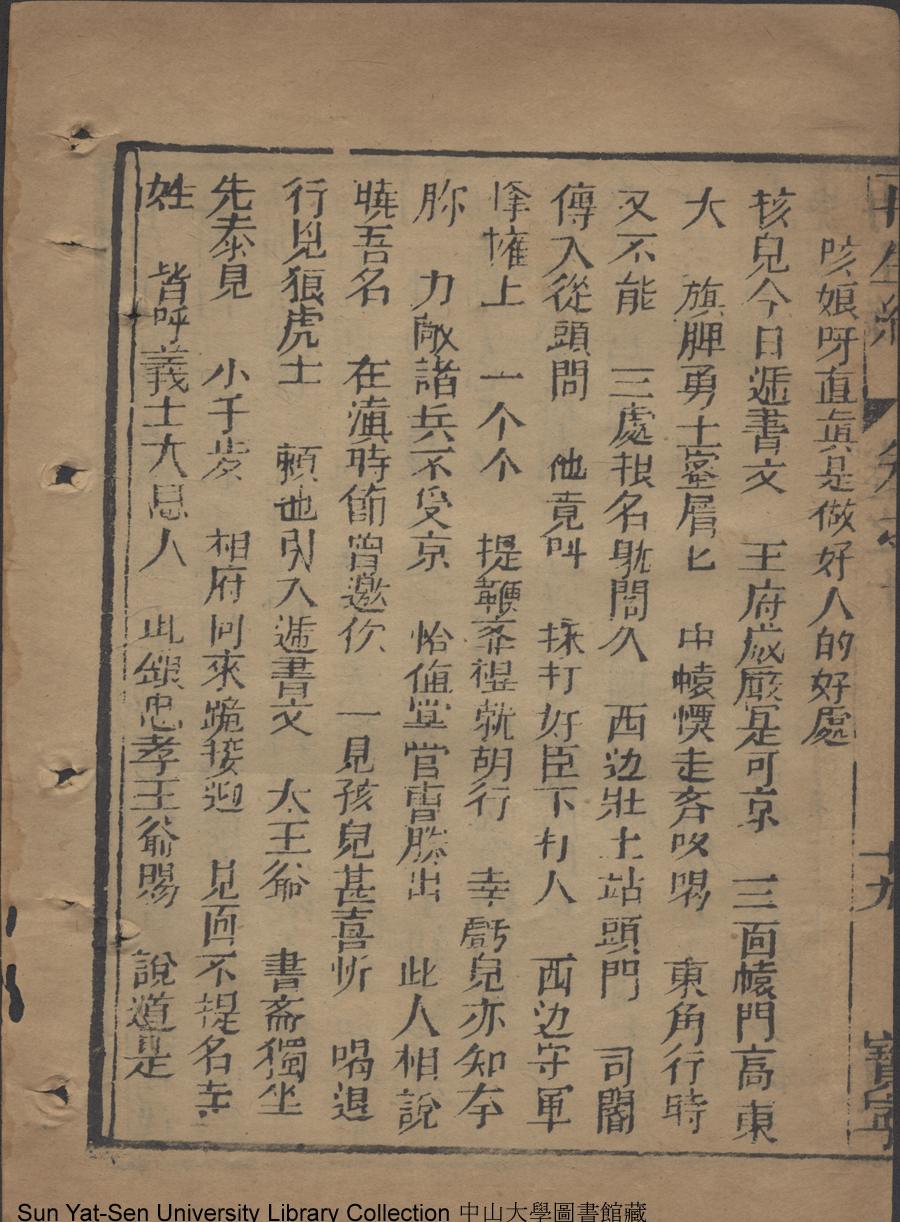 咳娘呀直眞是做好人的好處
核兒今日遞書文 王府嚴是可京 三面轅門高東
大 旗脾勇士密層匕 中轅慄走斉吆喝 東角行時
又不能 三處报名躭閣久 西边壯士站頭門 司閽
傳入從頭問 他竟叫 採打好臣下打人 西边守軍
擁上 一个个 提鞭就胡行 幸虧兒亦知本
力敵諸兵不受京 恰值堂官曹勝出 此人相說
曉吾名 在滇時節曾邀你 一見孩兒甚喜忻 喝退
行兇狼虎士 頼他引入遞書文 太王爺 書斎獨坐
先泰見 小千歲 相府囘來跪接迎 見面不提名幸
姓 皆呼義士大恩人 此銀忠孝王爺賜 說道是
十九
寶寧
Sun Yat-Sen University Library Collection 中山大學圖書館藏